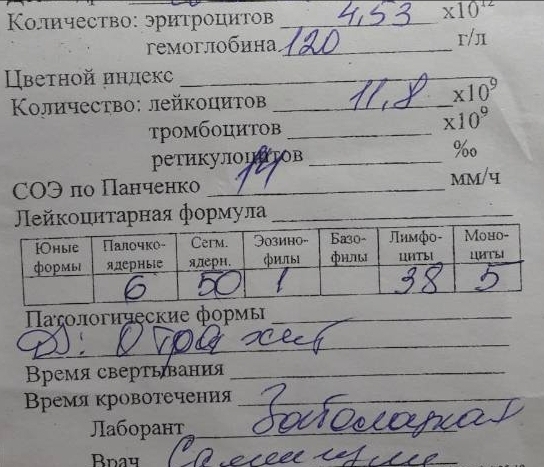 Количество: эритроцитов 4,53 х10¹²
гемоглобина 120 г/л
Цветной индекс
Количество: лейкоцитов 11,8 х10⁹
тромбоцитов х10⁹
ретикулоцитов ‰
СОЭ по Панченко 14 мм/ч
Лейкоцитарная формула
Юные формы Палочко-ядерные Сегм. ядерн. Эозино-филы Базо-филы Лимфо-циты Моно-циты
6 50 1 38 5
Патологические формы
Время свертывания
Время кровотечения
Лаборант
Врач